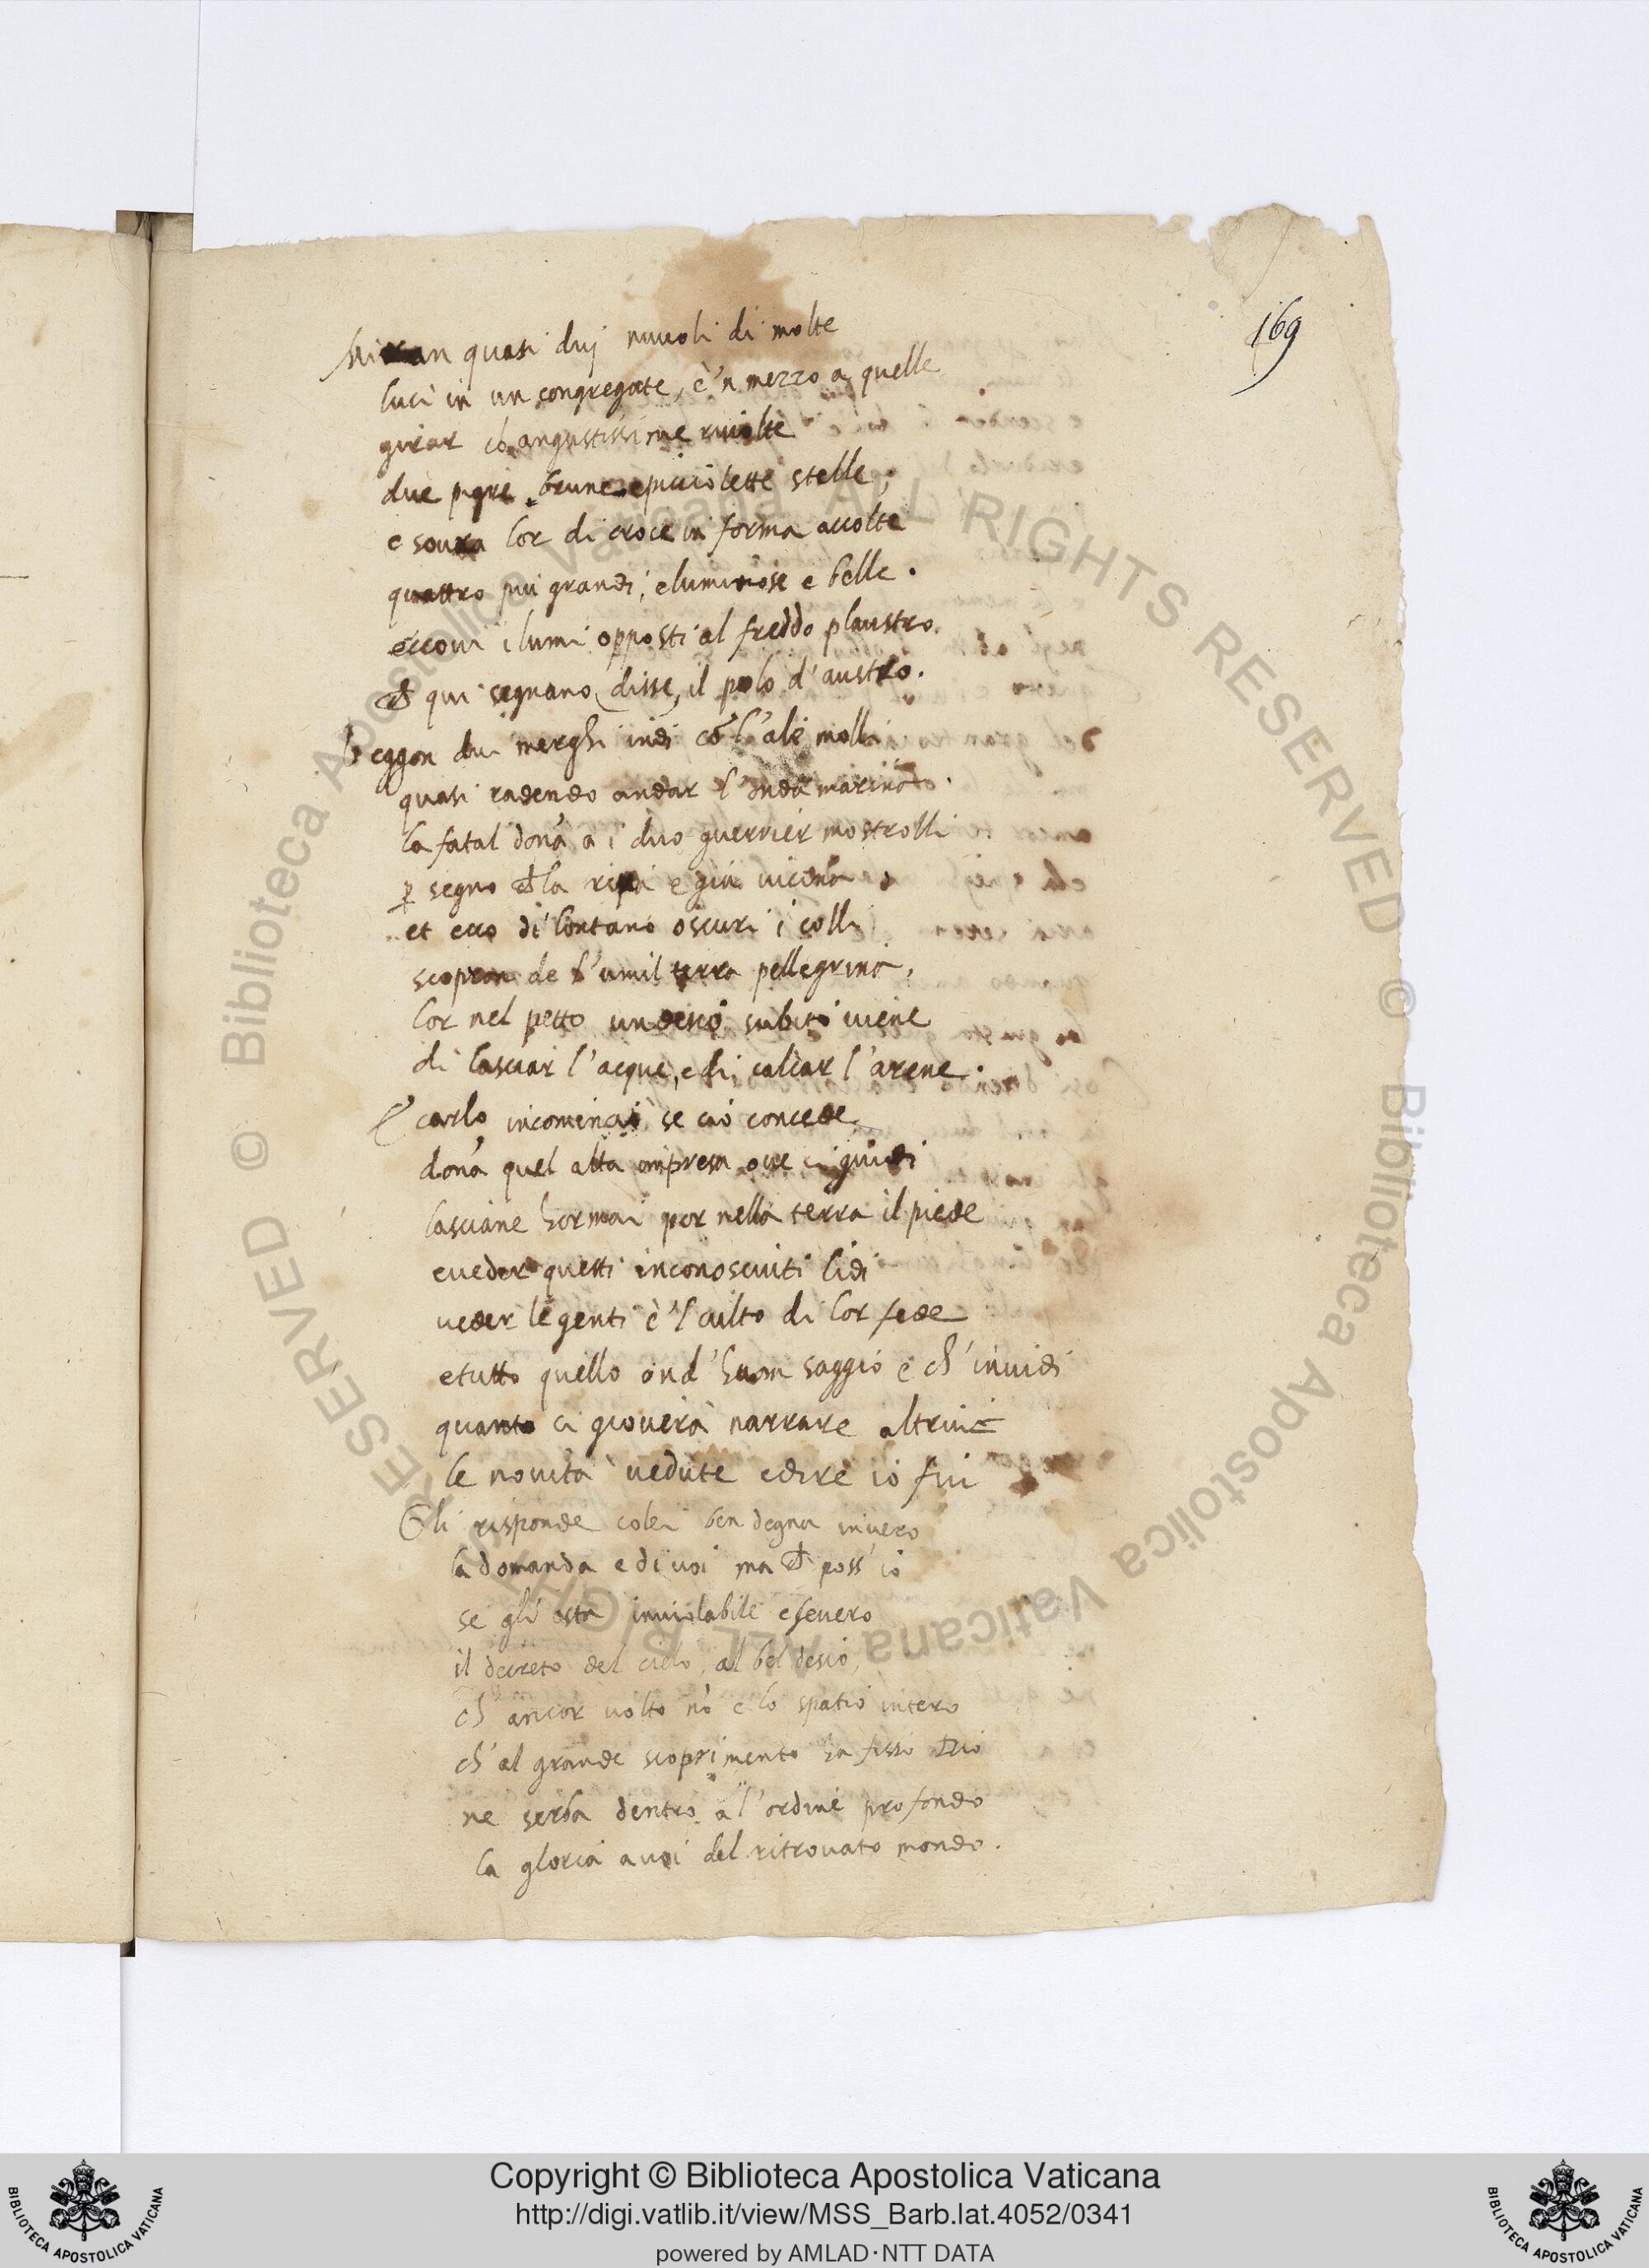 169
Miran quasi duj nuuoli di molte
luci in un congregate, è'n mezzo a quelle
girar cõ angustissime riuolte
due pigre brune e picciolette stelle;
e soura lor di croce in forma accolte
quattro piu grandi, e luminose e belle.
eccoui i lumi opposti al freddo plaustro.
ch qui segnano (disse) il polo d'austro.
Veggon dui merghi indi cõ l'ali molli
quasi radendo andar l'onda marina.
la fatal dona a i duo guerrier mostrolli
p segno ch la ripa e già uicina
et ecco di lontano oscuri i colli
scopron de l'umil terra pellegrina,
lor nel petto un desio subito uiene
di lasciar l'acque, e di calcar l'arene.
E carlo incominciò se ciò concede
dona quel alta impresa oue ci guidi
lasciane hormai por nella terra il piede
e ueder questi inconosciuti lidi
ueder le genti è'l culto di lor fede
e tutto quello ond'huom saggio è ch'inuidi
quanto ci giouerà narrare altrui
le nouità uedute e dire io fui
Gli risponde colei ben degna in uero
la domanda e di uoi ma ch poss'io
se gli osta inuiolabile e seuero
il decreto del cielo, al bel desio,
ch ancor uolto nõ e lo spatio intero
ch'al grande scoprimento ha fisso Dio
ne serba dentro a l'ordine profondo
la gloria a uoi del ritrouato mondo.
© Biblioteca Apostolica Vaticana ALL RIGHTS RESERVED © Biblioteca Apostolica Vaticana ALL RIGHTS RESERVED
Copyright © Biblioteca Apostolica Vaticana
http://digi.vatlib.it/view/MSS_Barb.lat.4052/0341
powered by AMLAD·NTT DATA
BIBLIOTECA APOSTOLICA VATICANA
BIBLIOTECA APOSTOLICA VATICANA